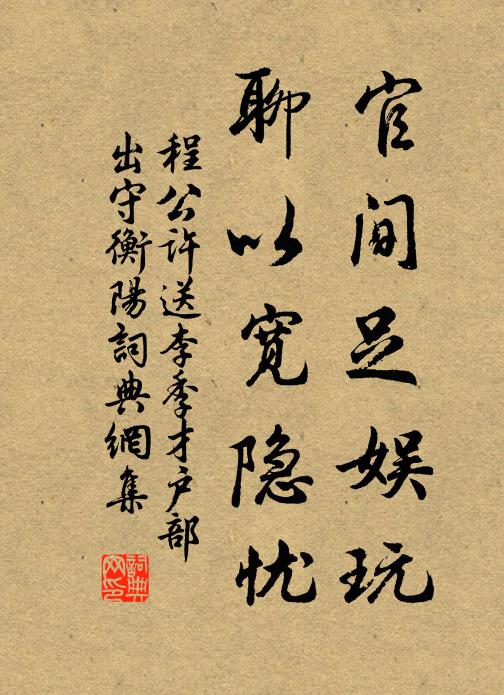 官间足娱玩
聊以宽隐忧
程公许送李季才户部
出守衡陽詞典網集
詞典网印